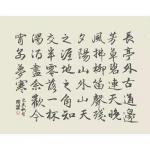 長亭外古道邊
芳草碧連天晚
風拂柳笛聲殘
夕陽山外山天
之涯地之角知
交半零落一杯
濁酒盡余歡今
宵別夢寒